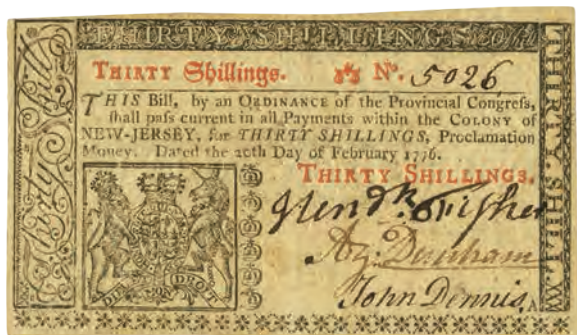 THIRTY SHILLINGS
THIRTY Shillings. No. 5026
THIS Bill, by an ORDINANCE of the Provincial Congreſs,
ſhall paſs current in all Payments within the COLONY of
NEW-JERSEY, for THIRTY SHILLINGS, Proclamation
Money. Dated the 20th Day of February 1776.
THIRTY SHILLINGS.
Hend.k Fiſher
Az: Dunham
John Dennis.
DIEU MON DROIT
Thirty Shill
THIRTY SHILL